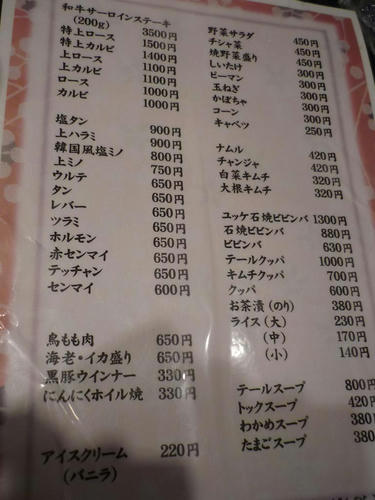 和牛サーロインステーキ
(200g) 3500円
特上ロース 1500円
特上カルビ 1400円
上ロース 1100円
上カルビ 1100円
ロース 1000円
カルビ 1000円
塩タン 900円
上ハラミ 900円
韓国風塩ミノ 800円
上ミノ 750円
ウルテ 650円
タン 650円
レバー 650円
ツラミ 650円
ホルモン 650円
赤センマイ 650円
テッチャン 650円
センマイ 600円
鳥もも肉 650円
海老・イカ盛り 650円
黒豚ウインナー 330円
にんにくホイル焼 330円
アイスクリーム 220円
(バニラ)
野菜サラダ 450円
チシャ菜 450円
焼野菜盛り 450円
しいたけ 300円
ピーマン 300円
玉ねぎ 300円
かぼちゃ 300円
コーン 300円
キャベツ 250円
ナムル 420円
チャンジャ 420円
白菜キムチ 320円
大根キムチ 320円
ユッケ石焼ビビンバ 1300円
石焼ビビンバ 880円
ビビンバ 630円
テールクッパ 1000円
キムチクッパ 700円
クッパ 600円
お茶漬(のり) 380円
ライス(大) 230円
(中) 170円
(小) 140円
テールスープ 800円
トックスープ 420円
わかめスープ 380
たまごスープ 380